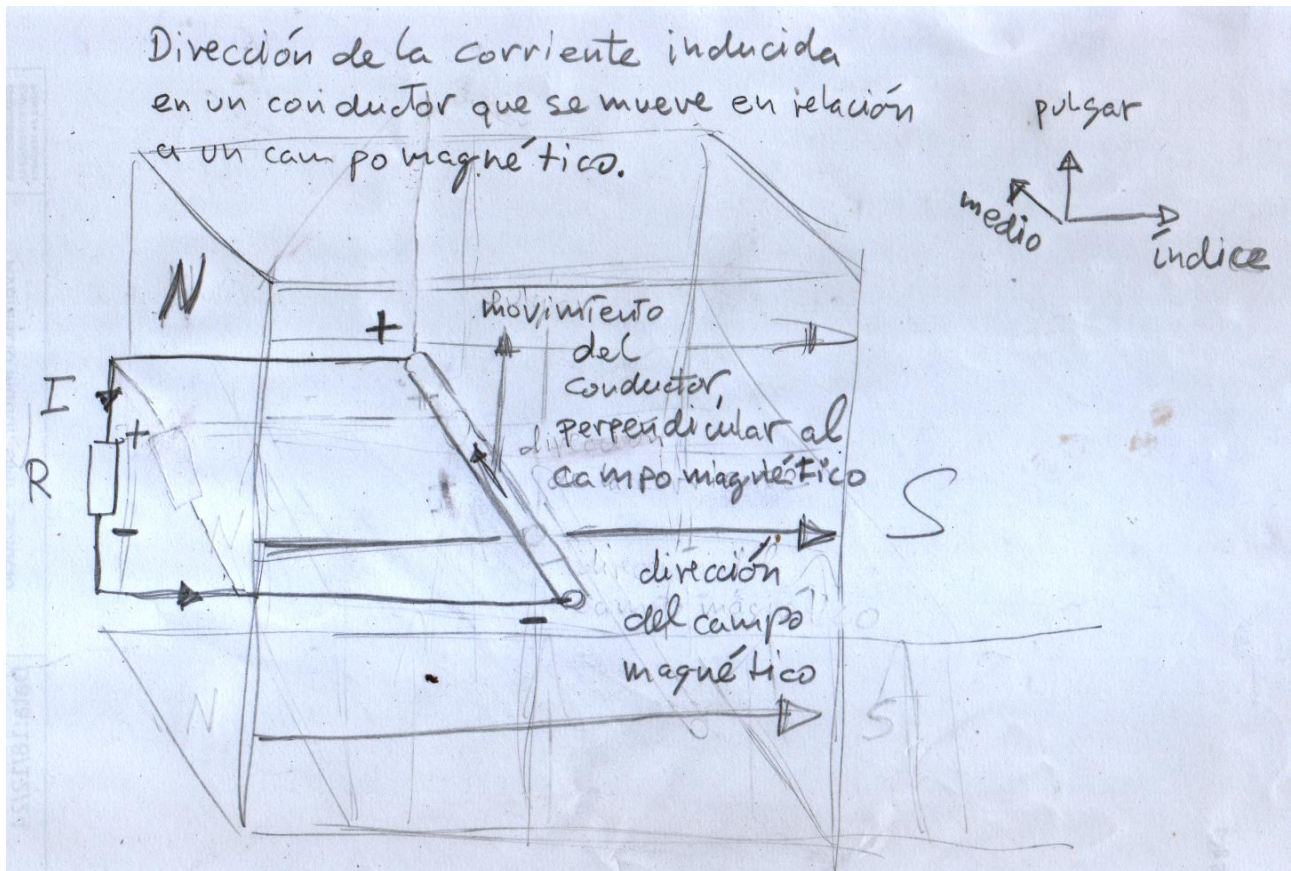 Dirección de la corriente inducida
en un conductor que se mueve en relación
a un campo magnético.
pulgar
medio
índice
N
+
movimiento
del
conductor,
perpendicular al
campo magnético
I
+
R
-
S
dirección
del campo
magnético
-
N
S